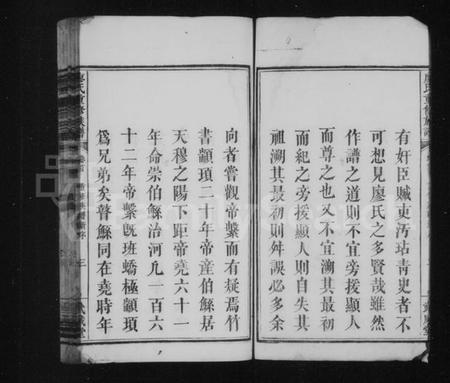 有奸臣贓吏汚玷青史者不
可想見廖氏之多賢哉雖然
作譜之道則不宜旁援顯人
而尊之也又不宜溯其最初
而紀之旁援顯人則自失其
祖溯其最初則舛誤必多余
向者嘗觀帝繫而有疑焉竹
書顓頊二十年帝產伯鯀居
天穆之陽下距帝堯六十一
年命崇伯鯀治河九一百六
十二年帝繫旣班蟜極顓頊
爲兄弟矣瞽鯀同在堯時年
廖氏重修族譜